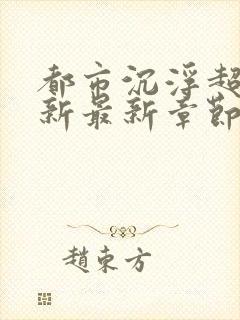 都市沉浮超
新最新章節
趙東方